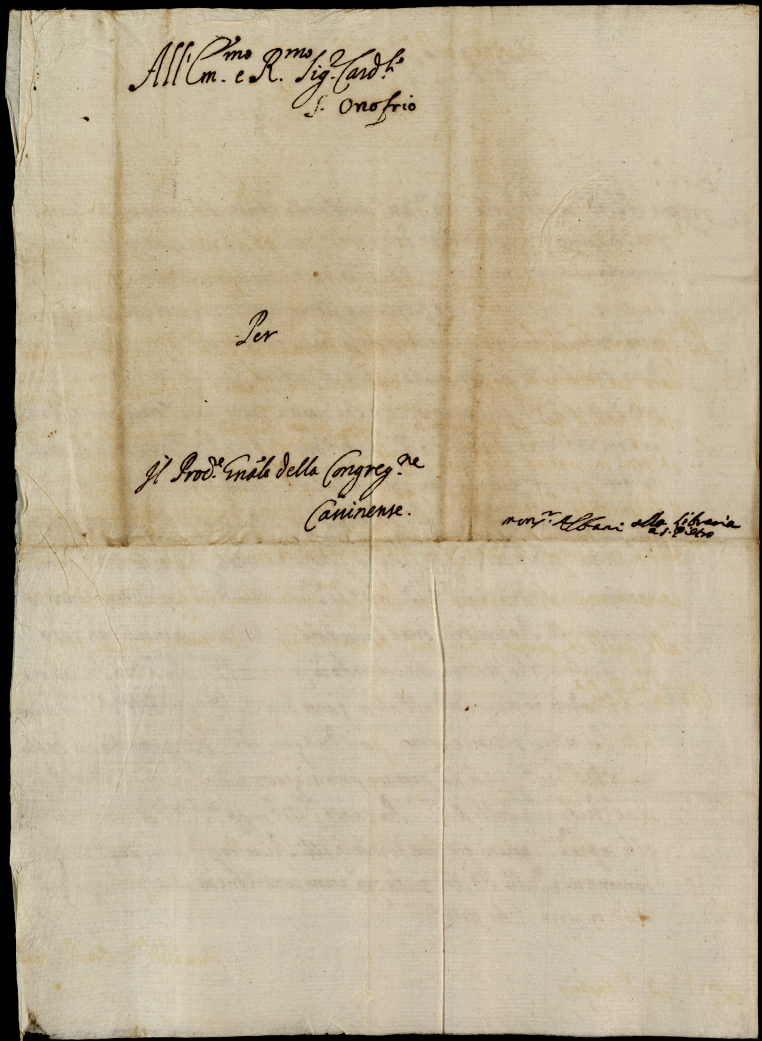 All'Em.mo e R.mo Sig.r Card.le
S. Onofrio
Per
Il Prod.e Gnãle della Congreg.ne
Cassinense.
mons.r Albani alla libraria
a S. Pietro